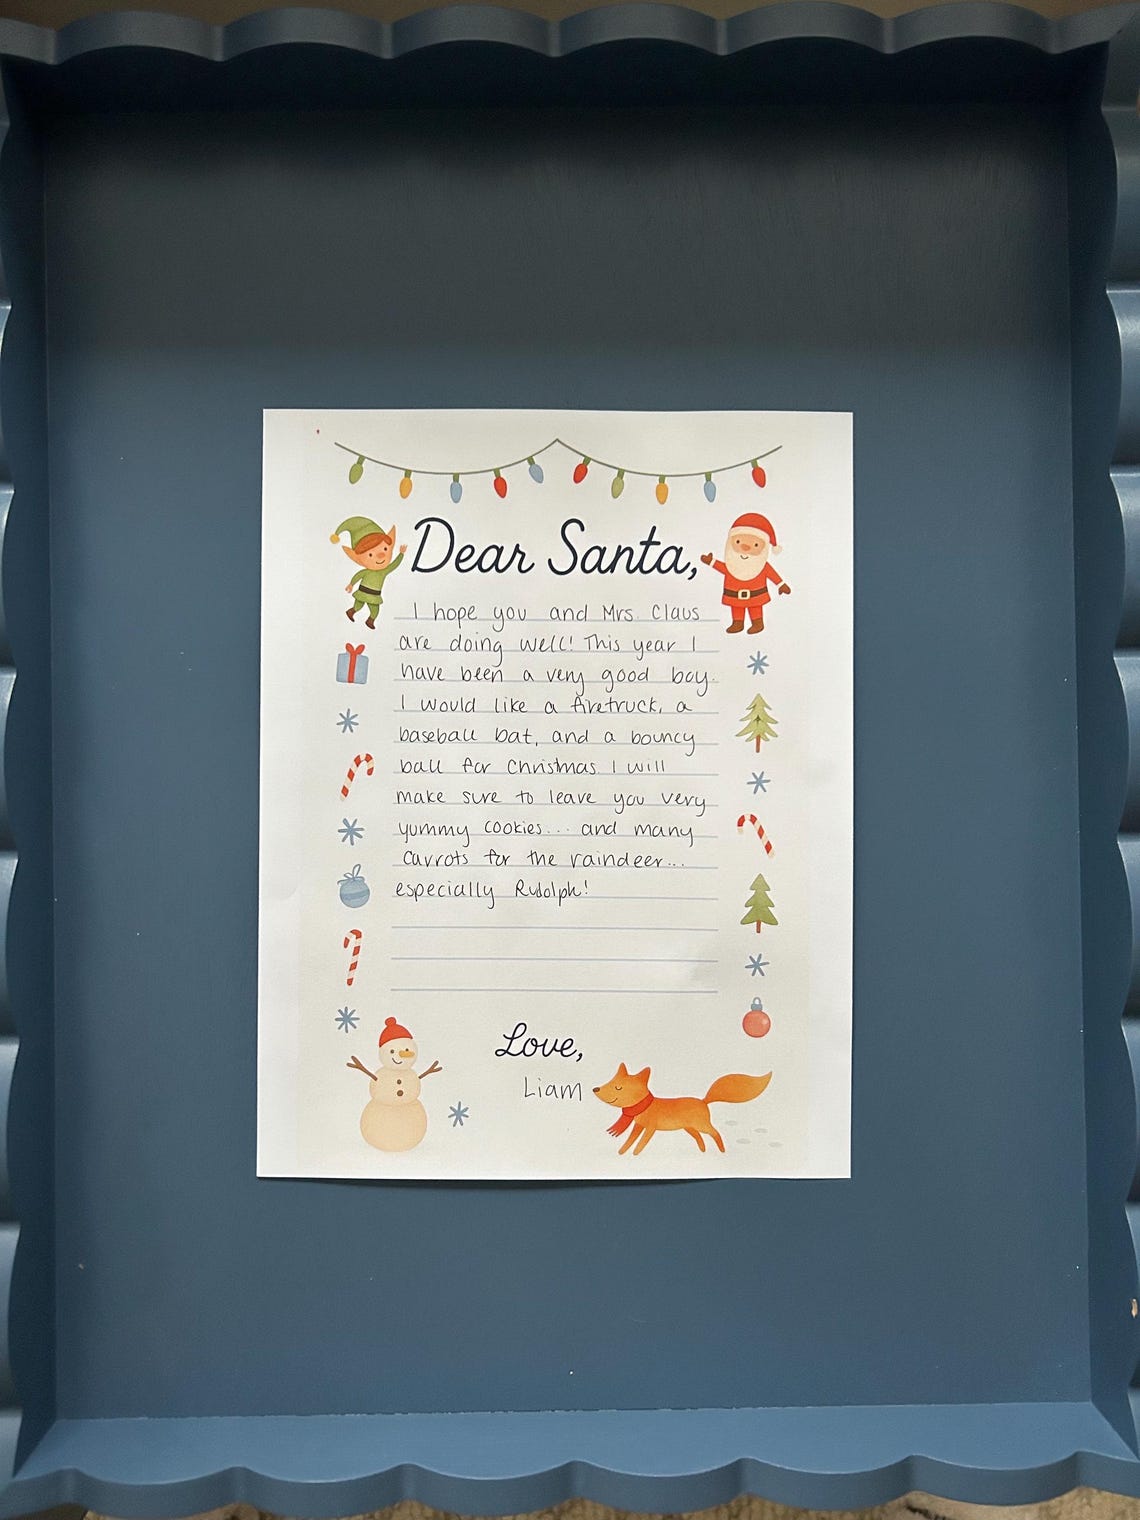 Dear Santa,
I hope you and Mrs. Claus
are doing well! This year I
have been a very good boy.
I would like a firetruck, a
baseball bat, and a bouncy
ball for Christmas. I will
make sure to leave you very
yummy cookies... and many
carrots for the raindeer...
especially Rudolph!
Love,
Liam